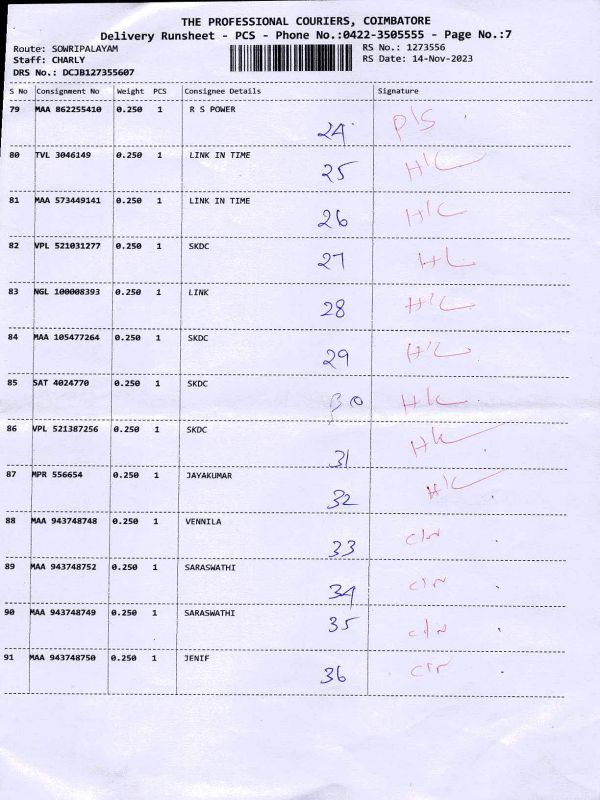 THE PROFESSIONAL COURIERS, COIMBATORE
Delivery Runsheet - PCS - Phone No.:0422-3505555 - Page No.:7
Route: SOWRIPALAYAM RS No.: 1273556
Staff: CHARLY RS Date: 14-Nov-2023
DRS No.: DCJB127355607
S No Consignment No Weight PCS Consignee Details Signature
79 MAA 862255410 0.250 1 R S POWER
24 P/S
80 TVL 3046149 0.250 1 LINK IN TIME
25
81 MAA 573449141 0.250 1 LINK IN TIME
26
82 VPL 521031277 0.250 1 SKDC
27
83 NGL 100008393 0.250 1 LINK
28
84 MAA 105477264 0.250 1 SKDC
29
85 SAT 4024770 0.250 1 SKDC
30
86 VPL 521387256 0.250 1 SKDC
31
87 MPR 556654 0.250 1 JAYAKUMAR
32
88 MAA 943748748 0.250 1 VENNILA
33
89 MAA 943748752 0.250 1 SARASWATHI
34
90 MAA 943748749 0.250 1 SARASWATHI
35
91 MAA 943748750 0.250 1 JENIF
36